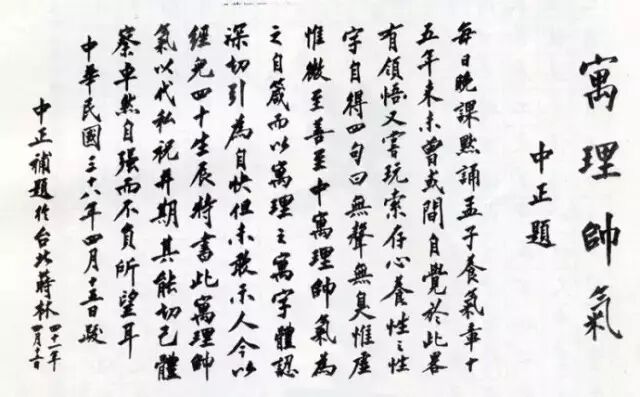 寓理帥氣
中正題
每日晚課默誦孟子養氣章十
五年來未曾或間自覺於此畧
有領悟又嘗玩索存心養性之性
字自得四句曰無聲無臭惟虛
惟微至善至中寓理帥氣為
之自箴而以寓理之寓字體認
深切引為自快但未敢示人今以
經兒四十生辰特書此寓理帥
氣以代私祝并期其能切己體
察卓然自强而不負所望耳
中華民國三十八年四月十五日跋
中正補題於台北蔣林
四十一年
四月